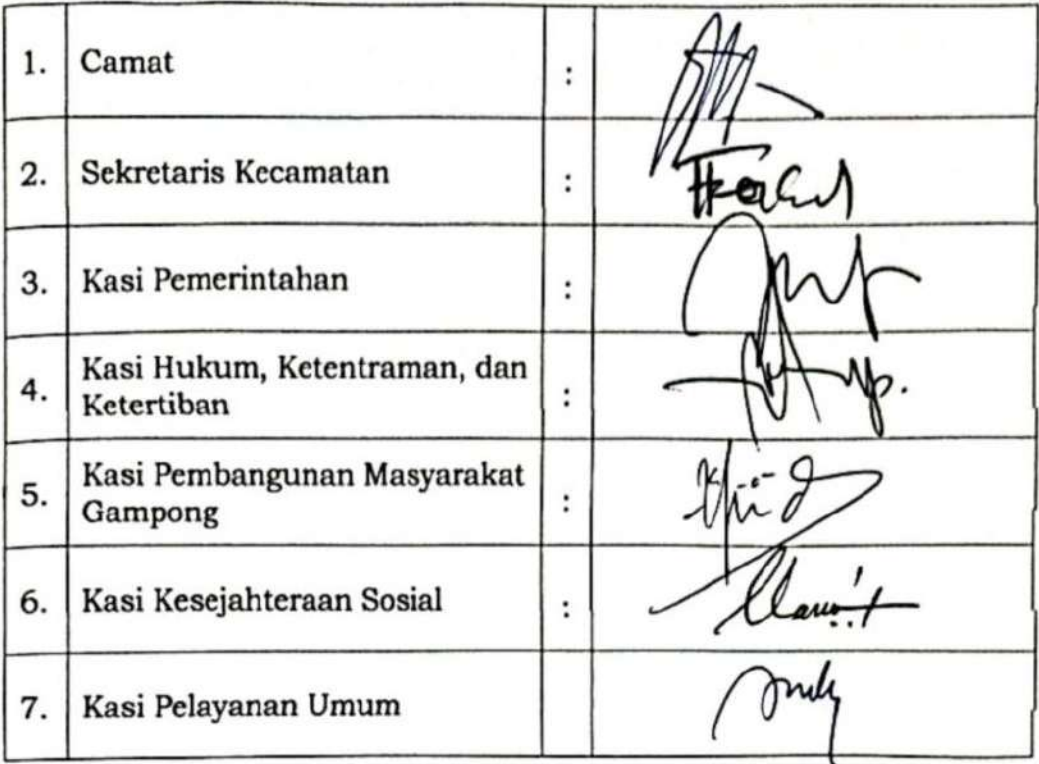 1. Camat :
2. Sekretaris Kecamatan :
3. Kasi Pemerintahan :
4. Kasi Hukum, Ketentraman, dan
Ketertiban :
5. Kasi Pembangunan Masyarakat
Gampong :
6. Kasi Kesejahteraan Sosial :
7. Kasi Pelayanan Umum